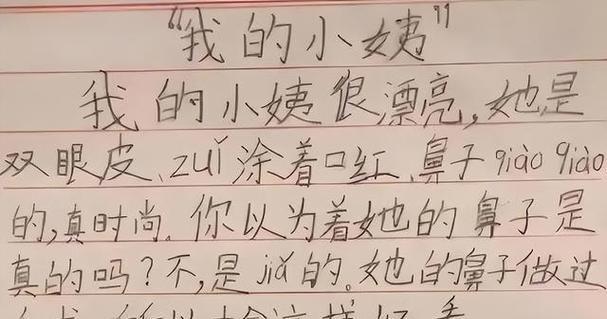 “我的小姨”
我的小姨很漂亮,她是
双眼皮、zuǐ涂着口红、鼻子qiào qiào
的,真时尚。你以为着她的鼻子是
真的吗?不,是jiǎ的。她的鼻子做过